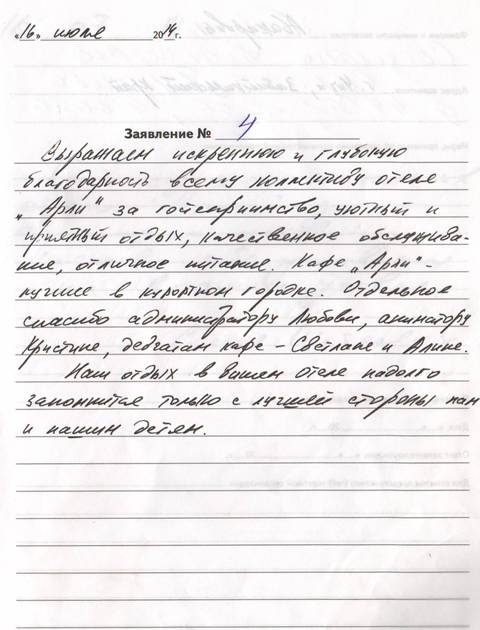 «16» июля 2014 г.
Заявление № 4
Выражаем искреннюю и глубокую
благодарность всему коллективу отеля
„Арли" за гостеприимство, уютный и
приятный отдых, качественное обслужива-
ние, отличное питание. Кафе „Арли" -
лучшее в курортном городке. Отдельное
спасибо администратору Любови, аниматору
Кристине, девчатам кафе - Светлане и Алине.
Наш отдых в вашем отеле надолго
запомнится только с лучшей стороны нам
и нашим детям.